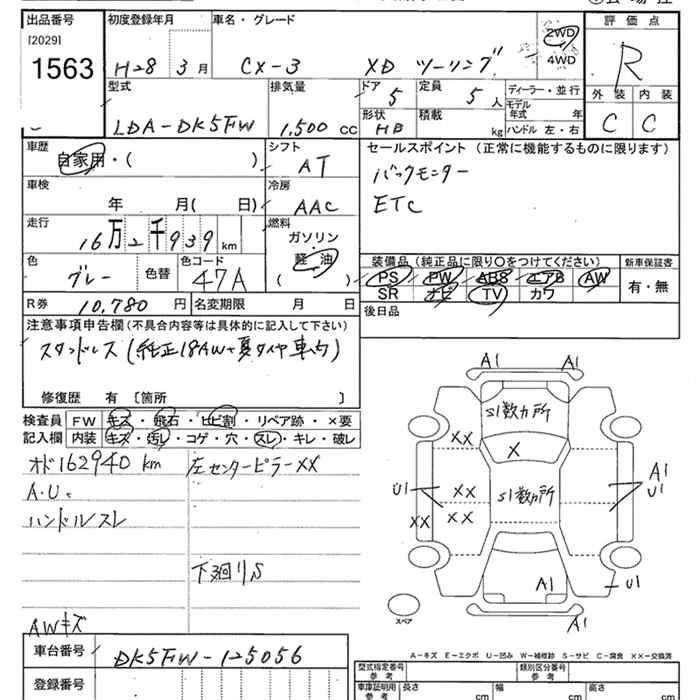 出品番号 初度登録年月 車名・グレード 評価点
[2029]
1563
H28 3月 CX-3 XD ツーリング 2WD 4WD R
型式 排気量 ドア 定員 ディーラー・並行 外装 内装
LDA-DK5FW 1,500 cc 5 5人 モデル年式 年 C C
形状 積載 ハンドル 左・右
HB kg
車歴 シフト セールスポイント (正常に機能するものに限ります)
自家用・( ) AT バックモニター
車検 冷房 ETC
年 月( 日) AAC
走行 燃料
16万2千939 km ガソリン
軽油
( )
色 色替 色コード
グレー 47A
装備品(純正品に限り〇をつけてください) 新車保証書
PS PW ABS エアB AW 有・無
SR ナビ TV カワ
R券 10,780円 名変期限 月 日 後日品
注意事項申告欄(不具合内容等は具体的に記入して下さい)
スタッドレス(純正18AW+夏タイヤ車内)
修復歴 有 〔箇所 〕
検査員記入欄 FW キズ・飛石・ヒビ割・リペア跡・×要
内装 キズ・汚レ・コゲ・穴・スレ・キレ・破レ
オド162940 km 左センターピラーXX
A・U。
ハンドルスレ
下廻りS
AWキズ
車台番号 DK5FW-125056
登録番号
A1 A1
S1数ヵ所
XX X
A1
U1 XX S1数ヵ所 U1
XX XX
A1 U1
スペア
A1
A-キズ E-エクボ U-凹み W-補修跡 S-サビ C-腐食 XX-交換済
型式指定番号 参考 類別区分番号 参考
車庫証明用 参考 長さ cm 幅 cm 高さ cm